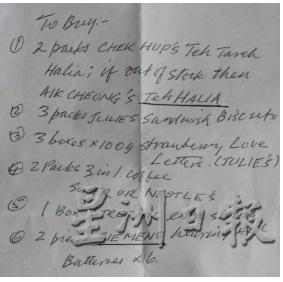 To Buy:-
① 2 packs CHEK HUP'S Teh Tareh
Halia; if out of stock then
AIK CHEONG'S Teh HALIA
② 3 packs JULIE'S Sandwich BISCUITS
③ 3 boxes x 100g strawberry Love
Letters. (JULIE'S)
④ 2 Packs 3 in 1 Coffee
OR NESTLE'S
⑤ 1 Box
星洲日報
⑥ 2 SIEMENS
Batteries x 6.